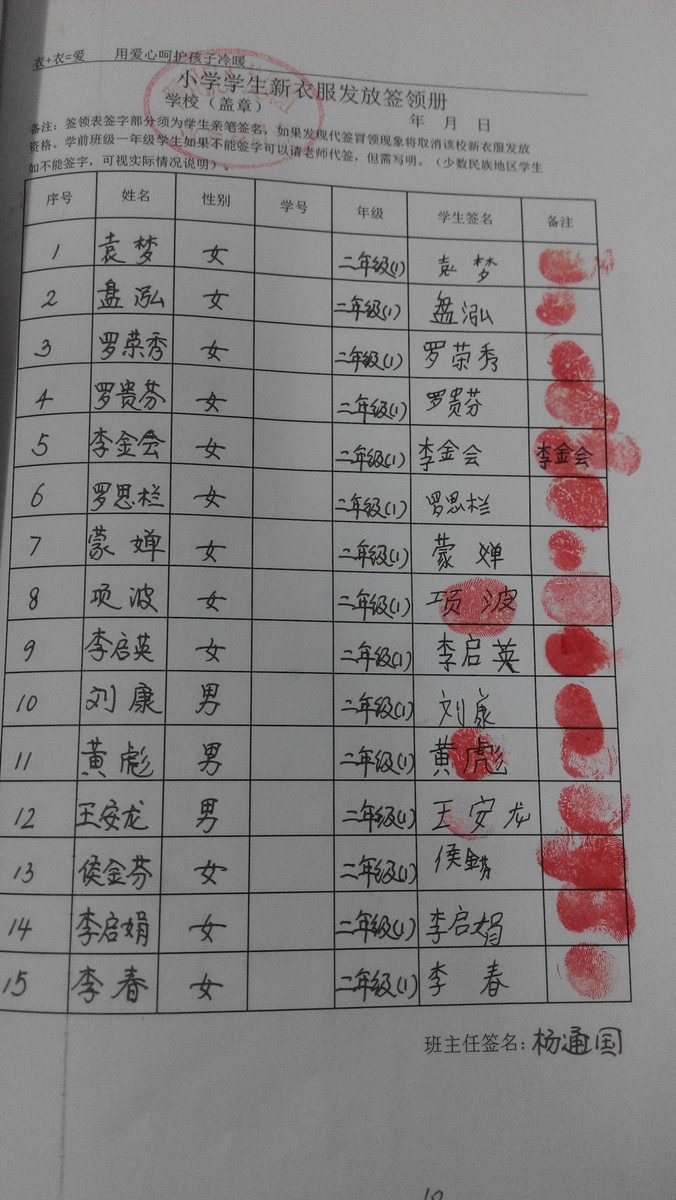 衣+衣=爱 用爱心呵护孩子冷暖
小学学生新衣服发放签领册
学校（盖章） 年 月 日
备注：签领表签字部分须为学生亲笔签名，如果发现代签冒领现象将取消该校新衣服发放
资格。学前班级一年级学生如果不能签字可以请老师代签，但需写明。（少数民族地区学生
如不能签字，可视实际情况说明）。
序号 姓名 性别 学号 年级 学生签名 备注
1 袁梦 女 二年级(1) 袁梦
2 盘泓 女 二年级(1) 盘泓
3 罗荣秀 女 二年级(1) 罗荣秀
4 罗贵芬 女 二年级(1) 罗贵芬
5 李金会 女 二年级(1) 李金会 李金会
6 罗思栏 女 二年级(1) 罗思栏
7 蒙婵 女 二年级(1) 蒙婵
8 项波 女 二年级(1) 项波
9 李启英 女 二年级(1) 李启英
10 刘康 男 二年级(1) 刘康
11 黄彪 男 二年级(1) 黄彪
12 王安龙 男 二年级(1) 王安龙
13 侯金芬 女 二年级(1) 侯金芬
14 李启娟 女 二年级(1) 李启娟
15 李春 女 二年级(1) 李春
班主任签名：杨通国